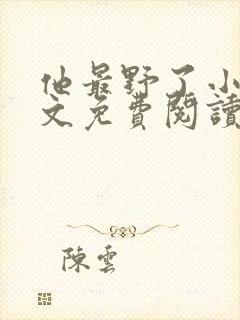 他最野了小
文免費閱讀
陳雲